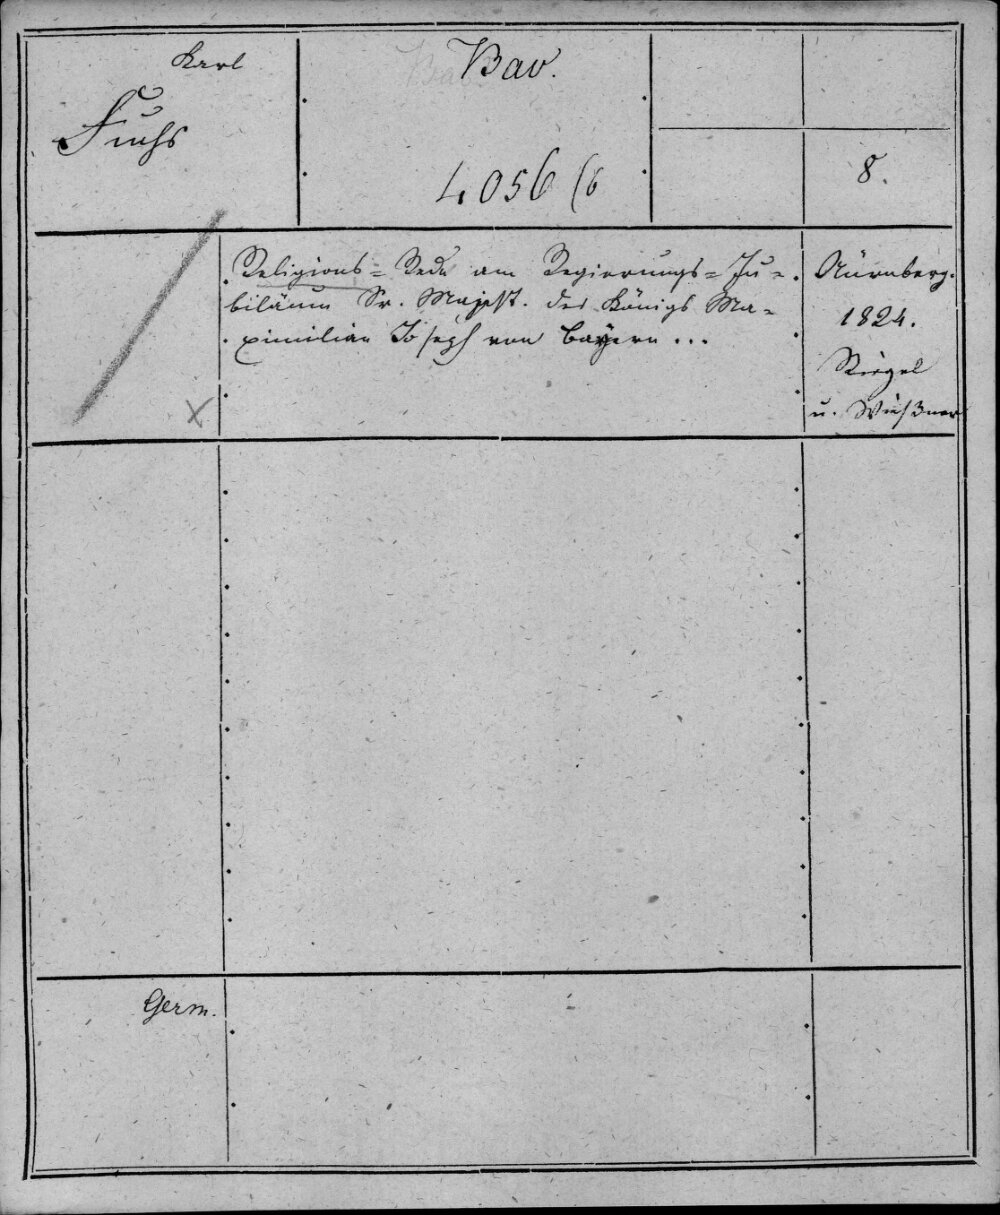 Karl
Fuchs
Bav.
4056 (6
8.
Religions=Rede am Regierungs=Ju=
biläum Sr. Majest. des Königs Ma=
ximilian Joseph von Bayern ...
Nürnberg.
1824.
Riegel
u. Wießner
X
Germ.